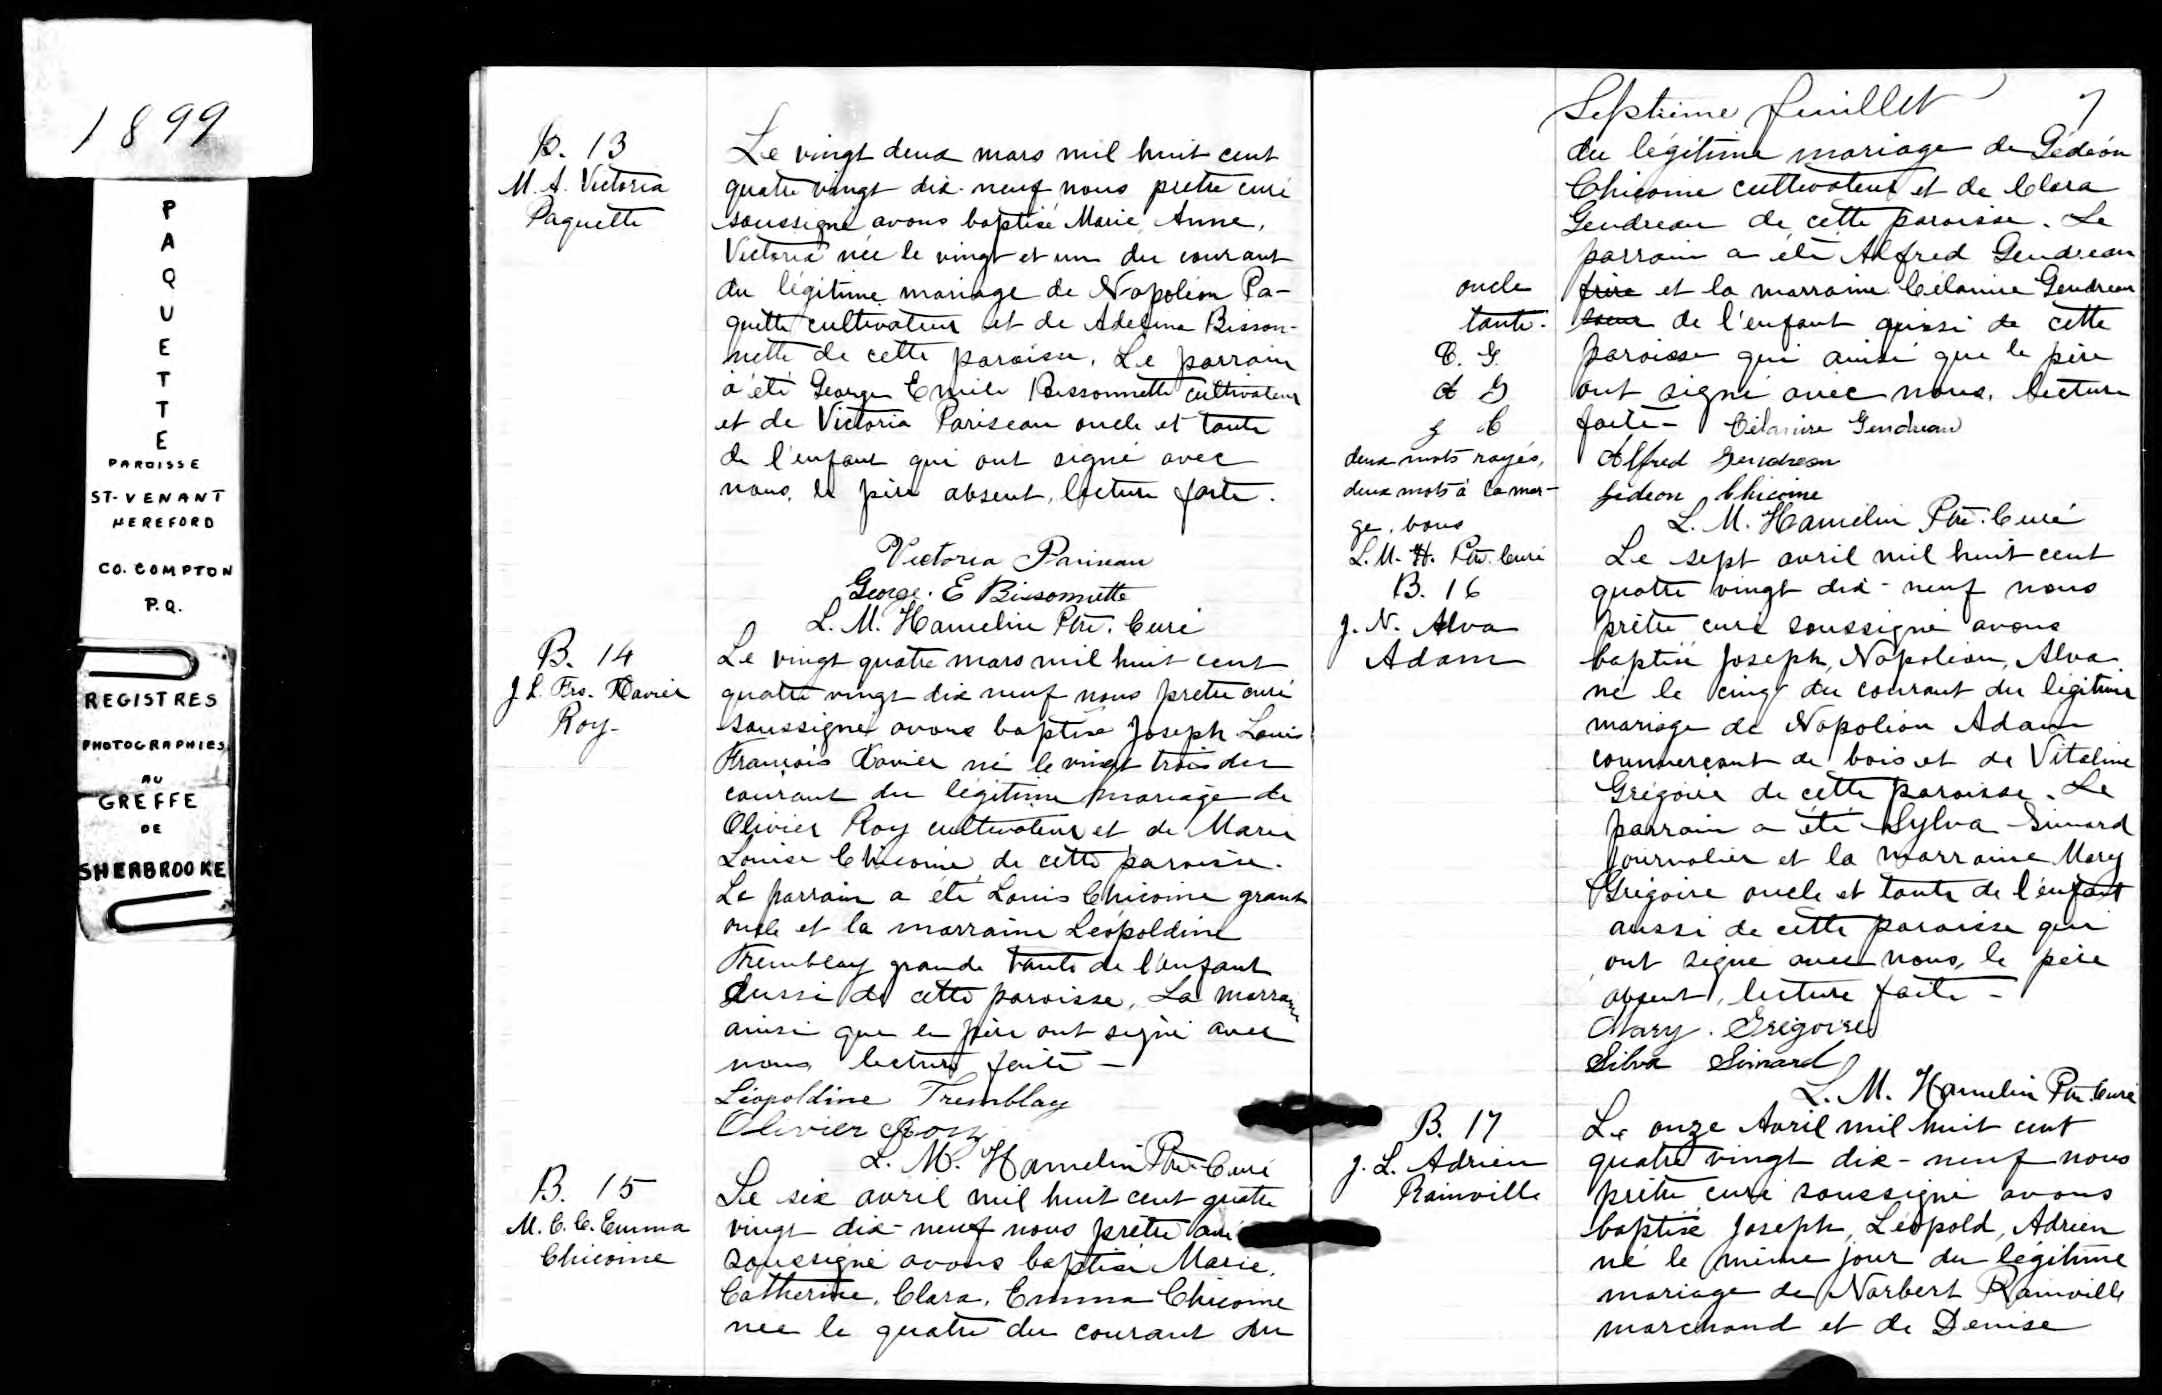 1899
PAQUETTE
PAROISSE
ST-VENANT
HEREFORD
CO. COMPTON
P.Q.
REGISTRES
PHOTOGRAPHIES
AU
GREFFE
DE
SHERBROOKE
B. 13
M. A. Victoria
Paquette
Le vingt deux mars mil huit cent
quatre vingt dix-neuf nous prêtre curé
soussigné avons baptisé Marie, Anne,
Victoria née le vingt et un du courant
du légitime mariage de Napoléon Pa-
quette cultivateur et de Adelina Bisson-
nette de cette paroisse. Le parrain
a été George Emile Bissonnette cultivateur
et de Victoria Pariseau oncle et tante
de l'enfant qui ont signé avec
nous, le père absent, lecture faite.
Victoria Pariseau
George. E Bissonnette
L. M. Hamelin Ptre. Curé
B. 14
J. L. Frs. Xavier
Roy-
Le vingt quatre mars mil huit cent
quatre vingt dix neuf nous prêtre curé
soussigné avons baptisé Joseph Louis
François Xavier né le vingt trois du
courant du légitime mariage de
Olivier Roy cultivateur et de Marie
Louise Chicoine de cette paroisse.
Le parrain a été Louis Chicoine grand
oncle et la marraine Léopoldine
Tremblay grande tante de l'enfant
aussi de cette paroisse, La marraine
ainsi que le père ont signé avec
nous, lecture faite -
Léopoldine Tremblay
Olivier Roy
L. M. Hamelin Ptre. Curé
B. 15
M. C. C. Emma
Chicoine
Le six avril mil huit cent quatre
vingt dix-neuf nous prêtre curé
soussigné avons baptisé Marie,
Catherine, Clara, Emma Chicoine
née le quatre du courant du
Septième feuillet 7
du légitime mariage de Gédéon
Chicoine cultivateur et de Clara
Gendreau de cette paroisse. Le
parrain a été Alfred Gendreau
frère et la marraine Célanire Gendreau
soeur de l'enfant aussi de cette
paroisse qui ainsi que le père
ont signé avec nous, lecture
faite- Célanire Gendreau
Alfred Gendreau
Gédeon Chicoine
L. M. Hamelin Ptre. Curé
oncle
tante.
C. G.
A G
G C
deux mots rayés,
deux mots à la mar-
ge, bons
L. M. H. Ptre. Curé
B. 16
J. N. Alva
Adam
Le sept avril mil huit cent
quatre vingt dix-neuf nous
prêtre curé soussigné avons
baptisé Joseph, Napoléon, Alva
né le cinq du courant du légitime
mariage de Napoléon Adam
commerçant de bois et de Vitaline
Grégoire de cette paroisse. Le
parrain a été Sylva Simard
journalier et la marraine Mary
Grégoire oncle et tante de l'enfant
aussi de cette paroisse qui
ont signé avec nous, le père
absent, lecture faite -
Mary. Grégoire
Silva Simard
L. M. Hamelin Ptre. Curé
B. 17
J. L. Adrien
Rainville
Le onze Avril mil huit cent
quatre vingt dix-neuf nous
prêtre curé soussigné avons
baptisé Joseph, Léopold, Adrien
né le même jour du légitime
mariage de Norbert Rainville
marchand et de Denise